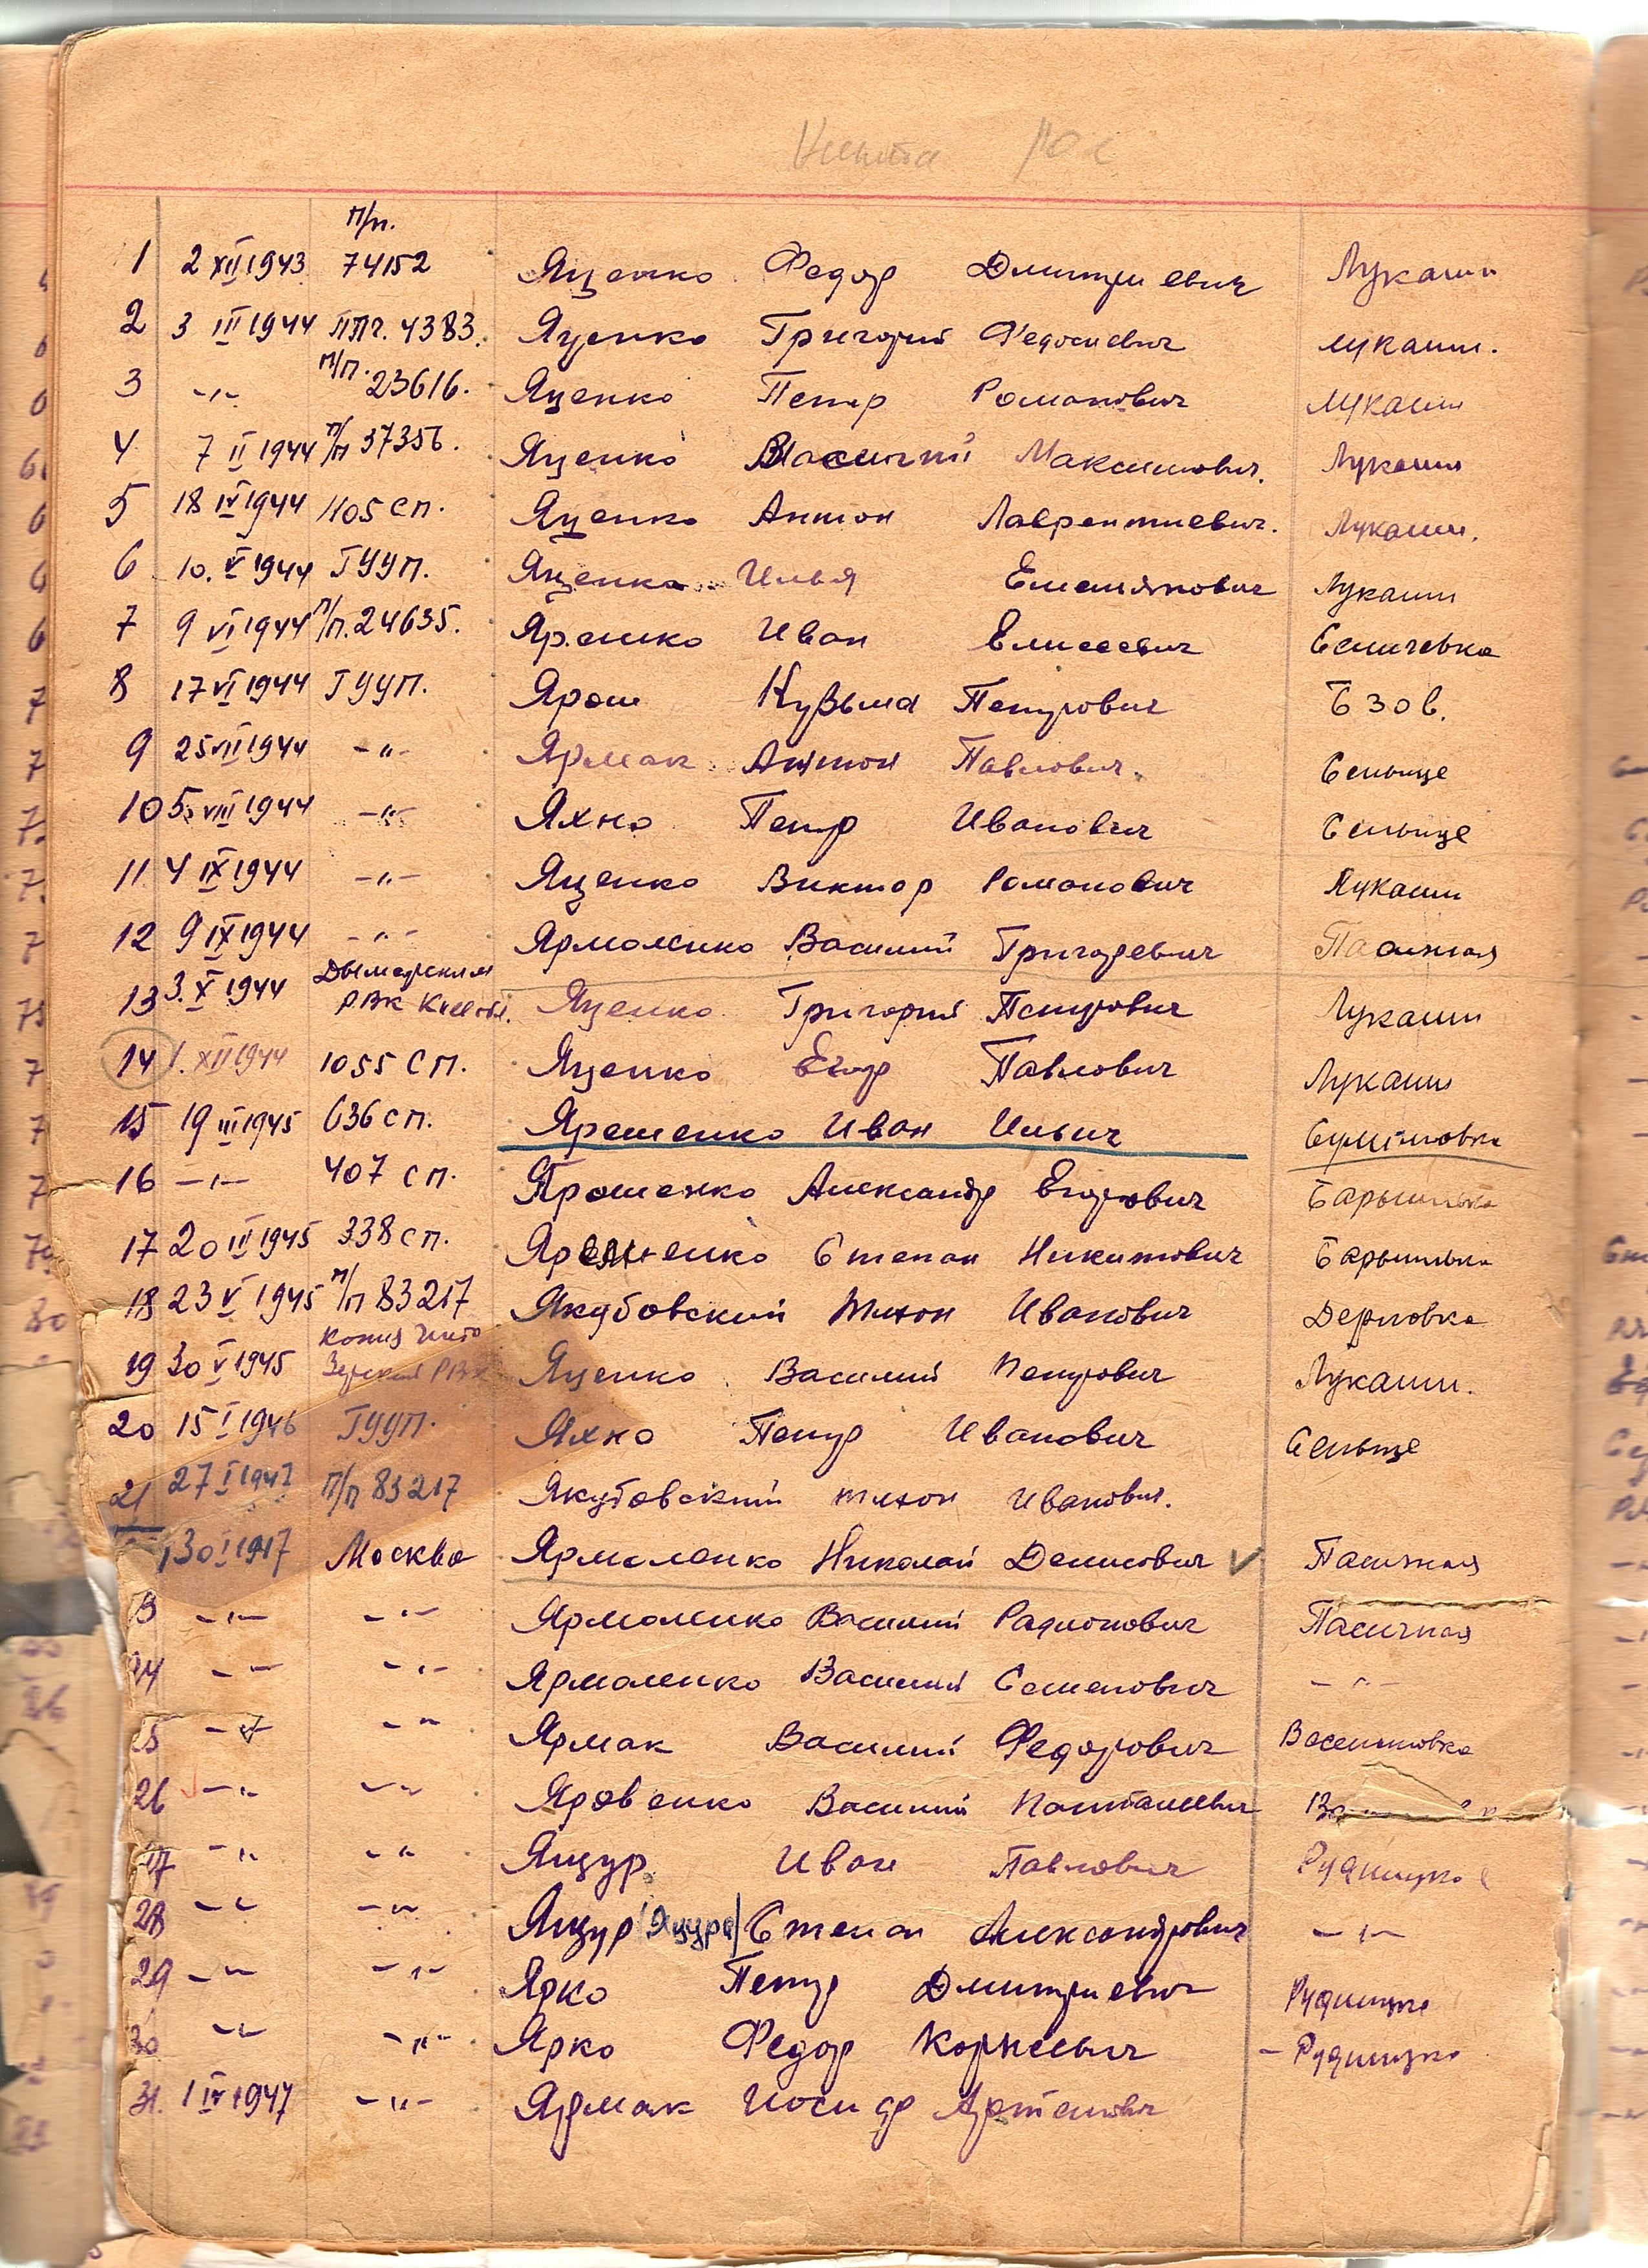 п/п.
1 2 XII 1943 74152 Яценко Федор Дмитриевич Лукаши
2 3 III 1944 ППч. 4383. Яценко Григорий Федосиевич Лукаши.
3 -"- п/п. 23616. Яценко Петр Романович Лукаши
4 7 II 1944 п/п 37356. Яценко Василий Максимович. Лукаши
5 18 IV 1944 1105 сп. Яценко Антон Лаврентиевич. Лукаши.
6 10. V 1944 ГУУП. Яценко Илья Емелянович Лукаши
7 9 VI 1944 п/п. 24635. Иван Елисеевич Селичевка
8 17 VI 1944 ГУУП. Ярош Кузьма Петрович Бзов.
9 25 VII 1944 -"- Ярмак Антон Павлович. Сельище
10 5. VIII 1944 -"- Яхно Петр Иванович Сельище
11 4 IX 1944 -"- Яценко Виктор Романович Лукаши
12 9 IX 1944 -"- Ярмоленко Василий Григоревич
13 3. X 1944 Дымерским РВК Киев обл. Яценко Григорий Петрович Лукаши
14 1. XII 1944 1055 СП. Яценко Егор Павлович Лукаши
15 19 III 1945 636 сп. Ярешенко Иван Ильич Сулимовка
16 -"- 407 сп. Ярошенко Александр Егорович Барышевка
17 20 III 1945 338 сп. Степан Никитович Барышевка
18 23 V 1945 п/п 83217 Якубовский Тихон Иванович Дерновка
19 30 V 1945 РВК Яценко Василий Петрович Лукаши.
20 15 I 1946 ГУУП. Яхно Петр Иванович Сельище
21 27 I 1947 п/п 83217 Якубовский Тихон Иванович.
30 I 1947 Москва Ярмоленко Николай Денисович Пасичная
3 -"- -"- Ярмоленко Василий Радионович Пасичная
24 -"- -"- Ярмоленко Василий Семенович -"-
25 -"- -"- Ярмак Василий Федорович Воеиковка
26 -"- -"- Яровенко Василий
27 -"- -"- Яцур Иван Павлович Рудницко
28 -"- -"- Яцур (Яцура) Степан Александрович -"-
29 -"- -"- Ярко Петр Дмитриевич Рудницко
30 -"- -"- Ярко Федор Корнеевич - Рудницко
31. 1 IV 1947 -"- Ярмак Иосип Артемович